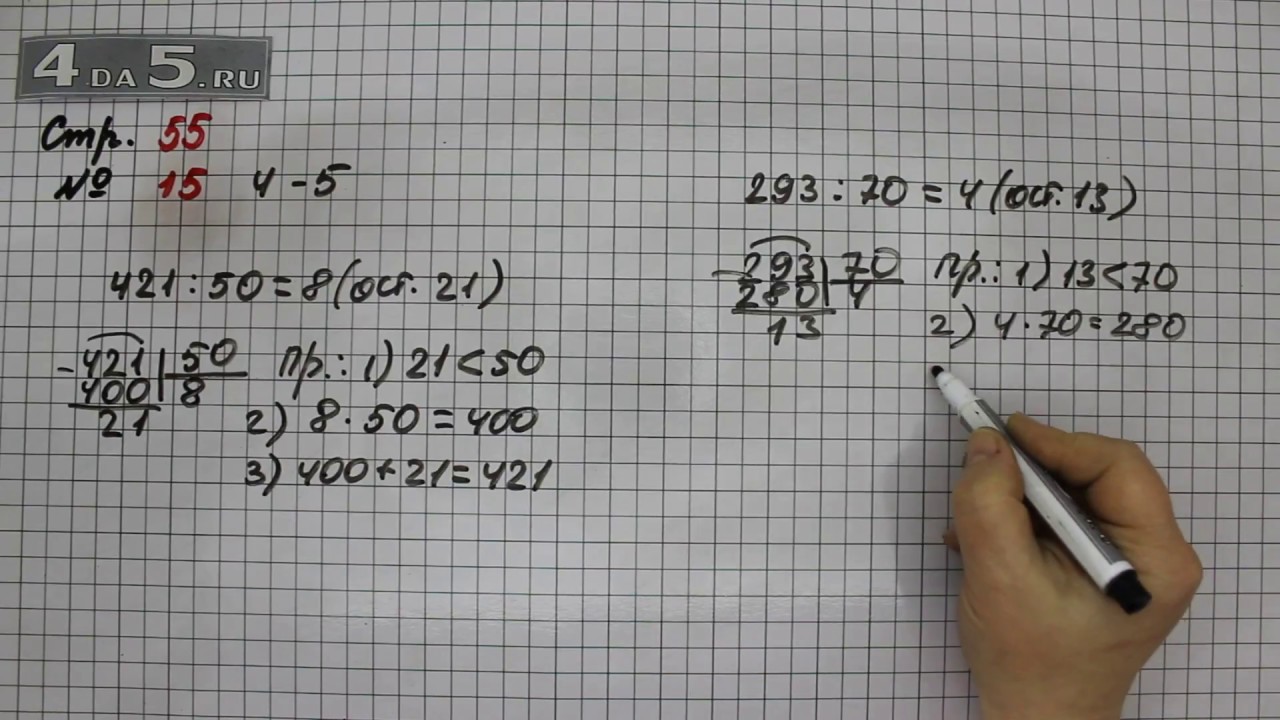 4DA5.RU
Стр. 55
№ 15 4-5
421 : 50 = 8 (ост. 21)
- 421 | 50
400 | 8
21
пр.: 1) 21 < 50
2) 8 · 50 = 400
3) 400 + 21 = 421
293 : 70 = 4 (ост. 13)
- 293 | 70
280 | 4
13
пр.: 1) 13 < 70
2) 4 · 70 = 280